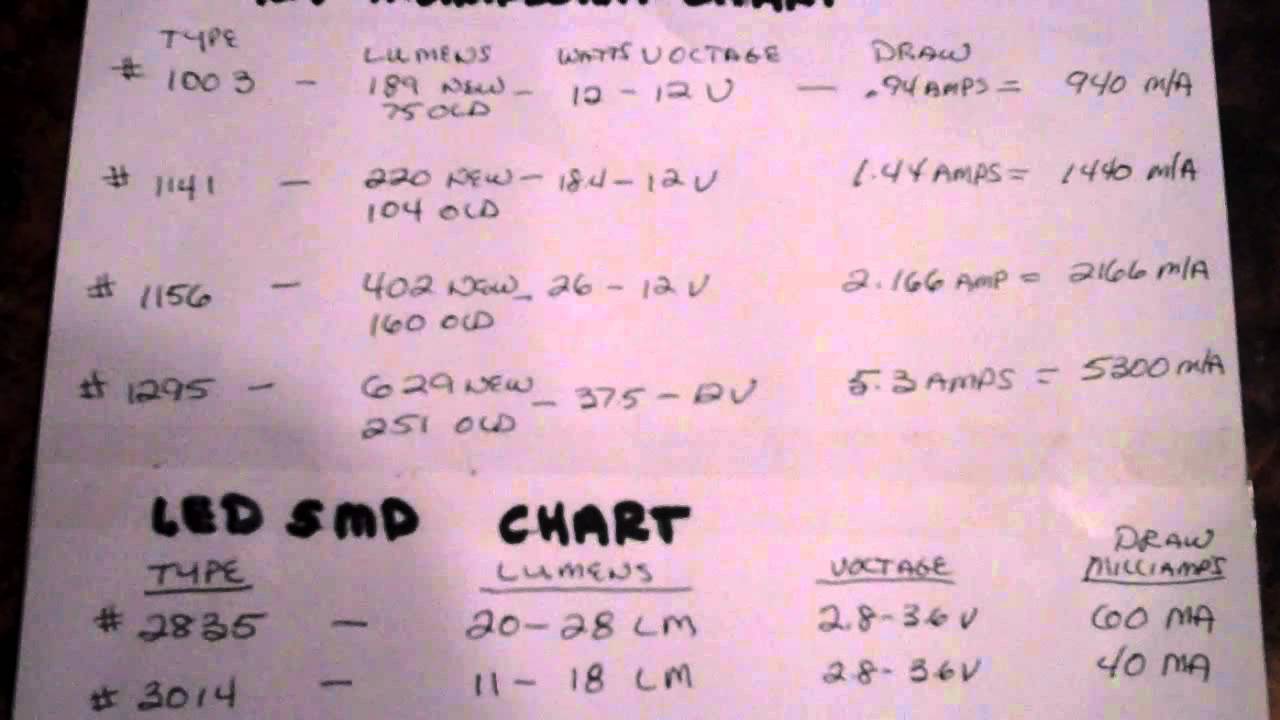 CHART
TYPE LUMENS WATTS VOLTAGE DRAW
# 1003 - 189 NEW - 12 - 12 V - .94 AMPS = 940 M/A
75 OLD
# 1141 - 220 NEW - 18.4 - 12 V 1.44 AMPS = 1440 M/A
104 OLD
# 1156 - 402 NEW - 26 - 12 V 2.166 AMP = 2166 M/A
160 OLD
# 1295 - 629 NEW - 37.5 - 12 V 5.3 AMPS = 5300 M/A
251 OLD
LED SMD CHART
TYPE LUMENS VOLTAGE DRAW MILLIAMPS
# 2835 - 20-28 LM 2.8-3.6 V 60 MA
# 3014 - 11-18 LM 2.8-3.6 V 40 MA